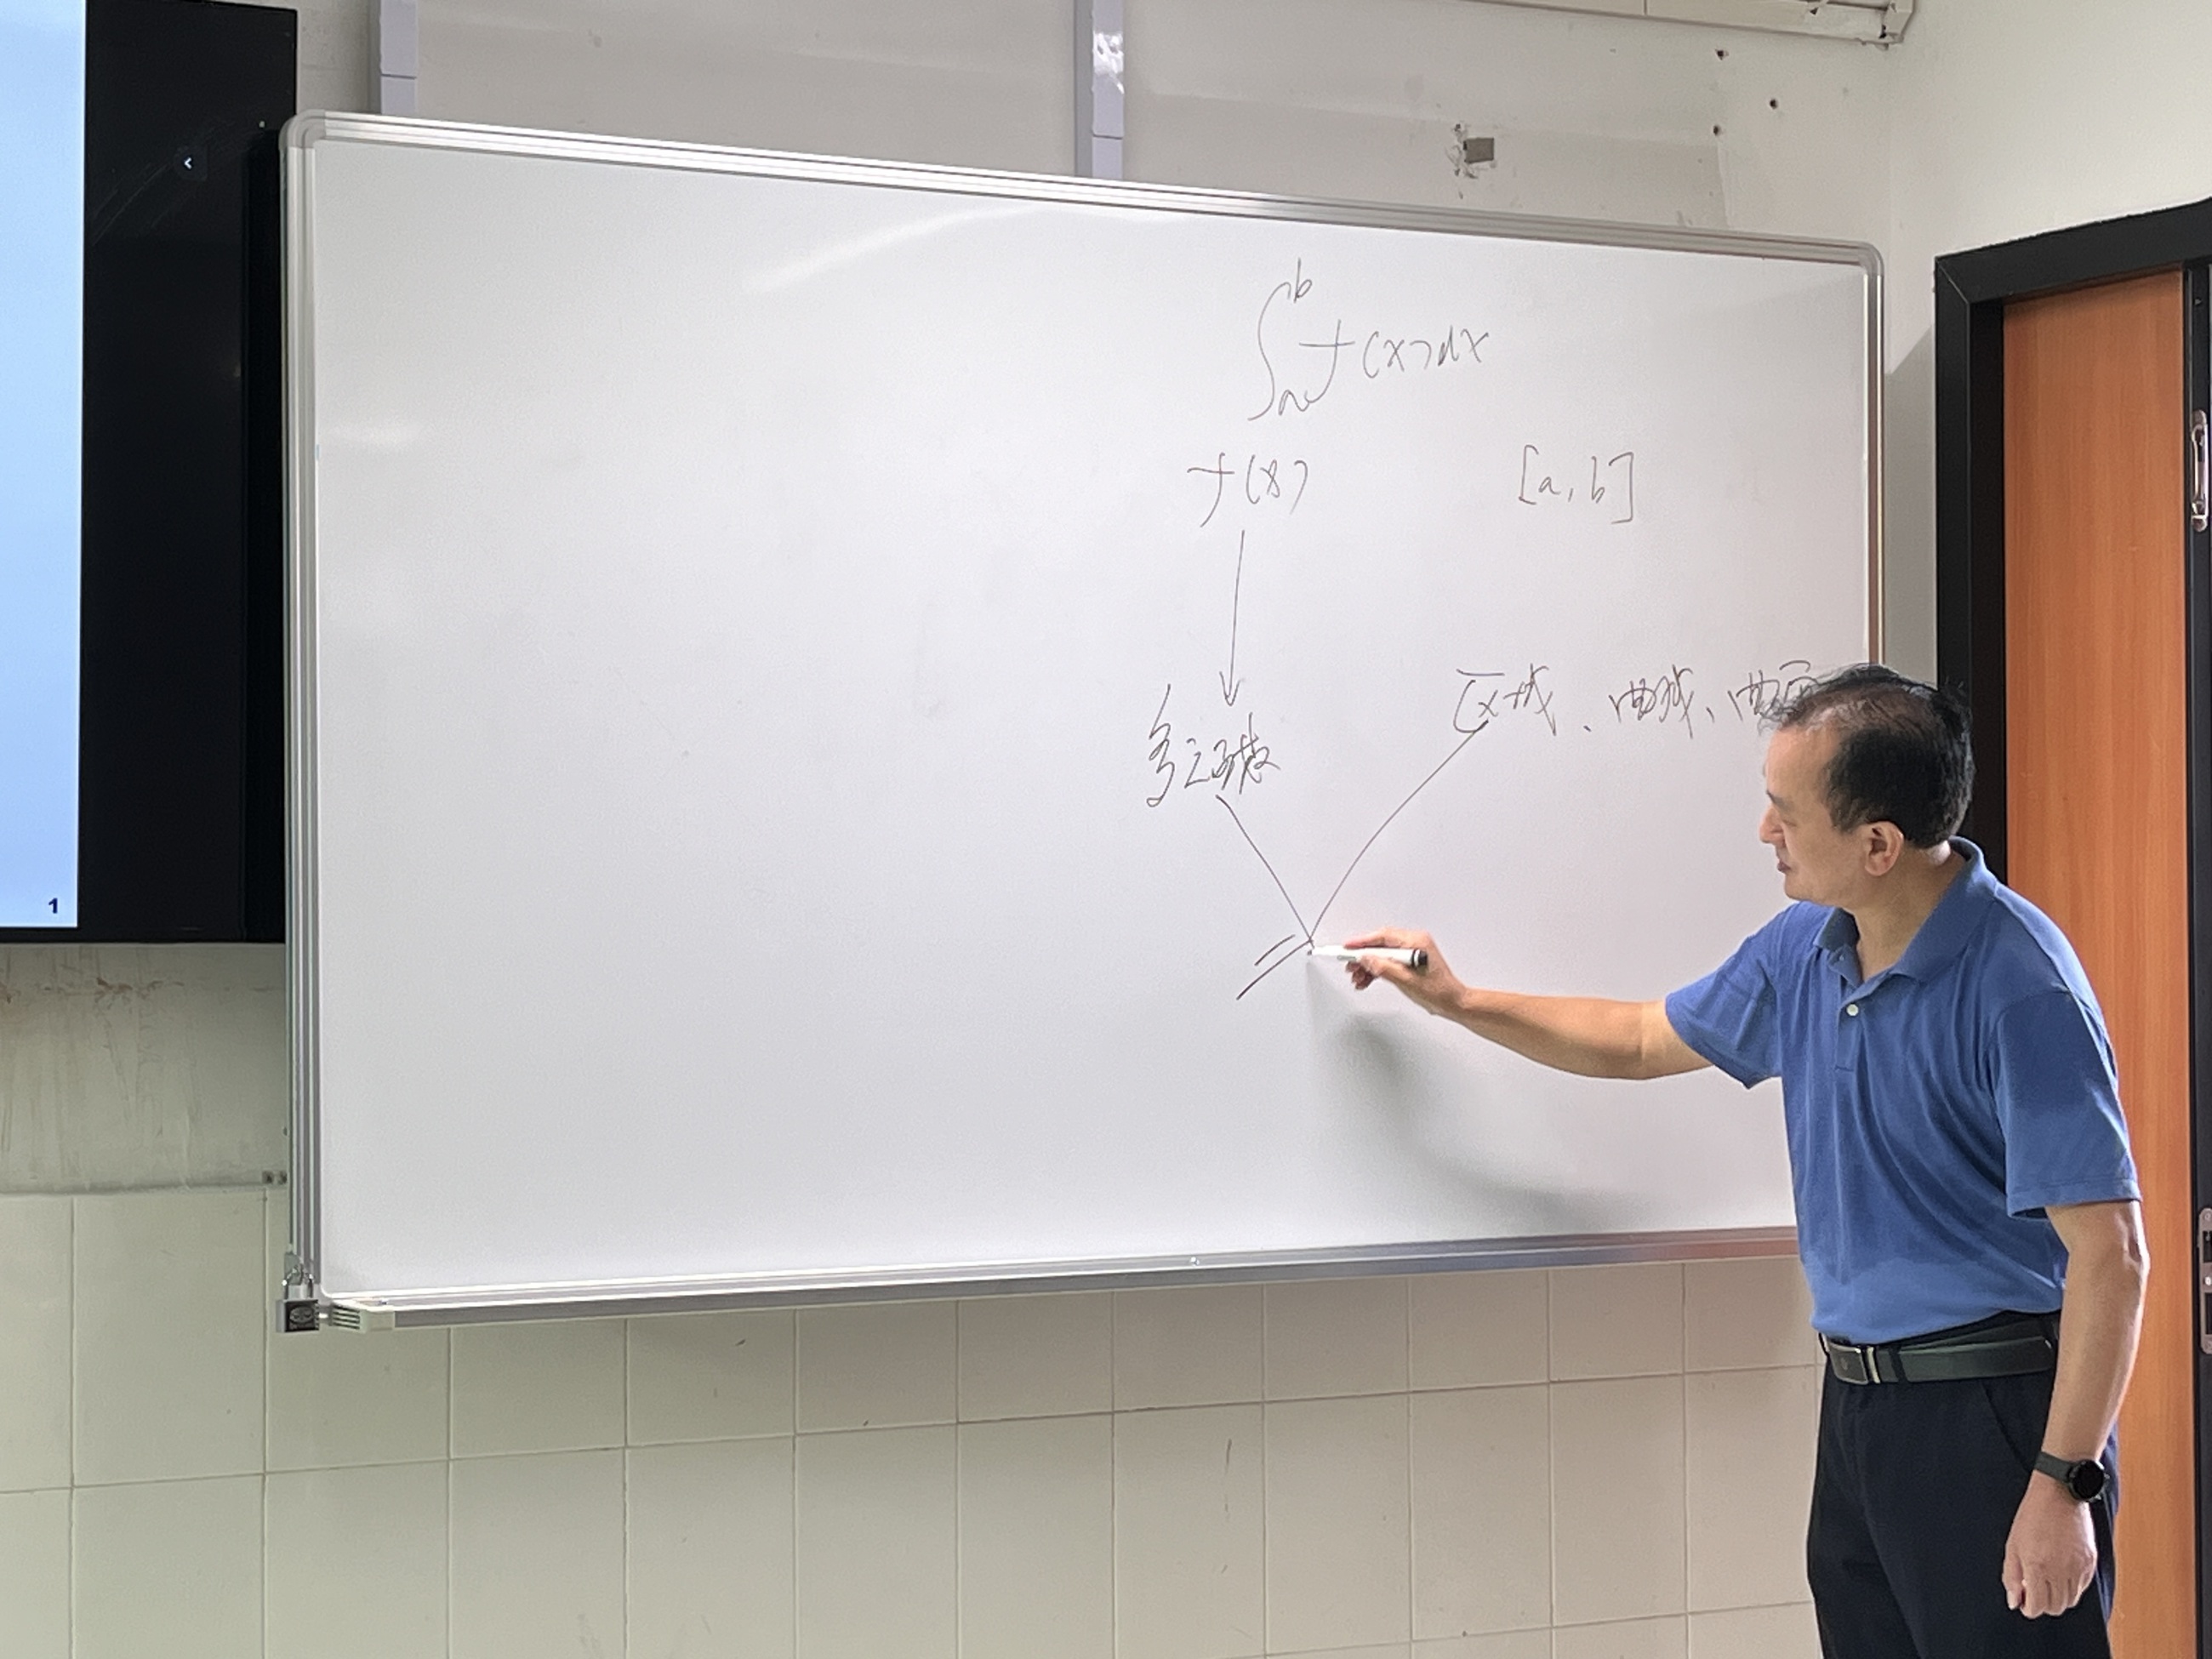 ∫_a^b f(x)dx
f(x) [a,b]
区域、曲线、曲面
多元函数
1